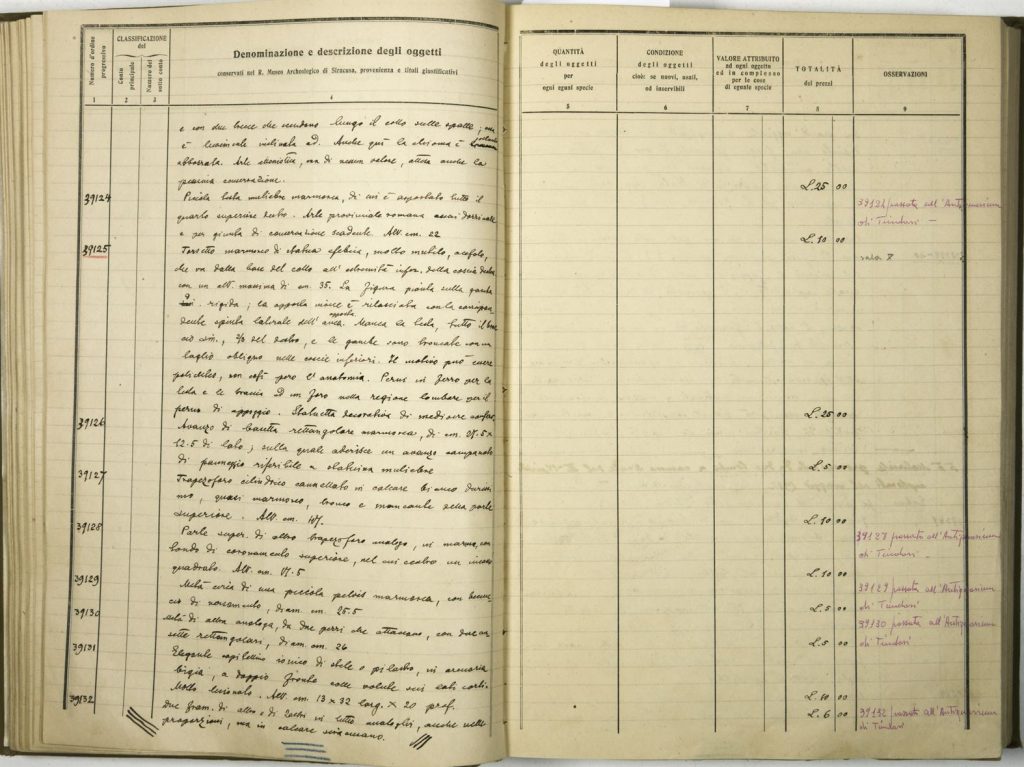 Numero d'ordine progressivo
CLASSIFICAZIONE del
Conto principale
Numero del sotto conto
Denominazione e descrizione degli oggetti
conservati nel R. Museo Archeologico di Siracusa, provenienza e titoli giustificativi
1 2 3 4
e con due trecce che scendono lungo il collo sulle spalle;
è inclinata ad. Anche qui la chioma è
abbozzata. Arte, ma di nessun valore, attesa anche la
pessima conservazione.
39124 Piccola testa muliebre marmorea, di cui è asportato tutto il
quarto superiore destro. Arte provinciale romana assai dozzinale
e per giunta di conservazione scadente. Alt. cm. 22
39125 Torsetto marmoreo di statua efebica, molto mutilo, acefalo,
che va dalla base del collo all'estremità infer. della coscia destra
con un alt. massima di cm. 35. La figura pianta sulla gamba
rigida; la opposta invece è rilasciata con la corrispon
dente spinta laterale dell'anca opposta. Manca la testa, tutto il brac
cio sin., 2/3 del destro, e le gambe sono troncate con un
taglio obliquo nelle coscie inferiori. Il motivo può essere
policleteo, non così però l'anatomia. Pernii in ferro per la
testa e le braccia ed un foro nella regione lombare per il
perno di appoggio. Statuetta decorativa di mediocre
39126 Avanzo di basetta rettangolare marmorea, di cm. 17.5 x
12.5 di lato; sulla quale aderisce un avanzo
di panneggio riferibile a statuina muliebre
39127 Trapezoforo cilindrico cannellato in calcare bianco durissi
mo, quasi marmoreo, tronco e mancante della parte
superiore. Alt. cm. 47.
39128 Parte super. di altro trapezoforo analogo, in marmo, con
tondo di coronamento superiore, nel cui centro un incavo
quadrato. Alt. cm. 17.5
39129 Metà circa di una piccola pelvis marmorea, con becuc
cio di versamento, diam. cm. 25.5
39130 Metà di altra analoga, da due pezzi che attaccano, con due
rettangolari, diam. cm. 26
39131 Elegante capitellino ionico di stele o pilastro, in arenaria
bigia, a doppio fronte colle volute sui lati corti.
Molto lesionato. Alt. cm. 13 x 32 larg. x 20 prof.
39132 Due fram. di altro in tutto analoghi, anche nelle
proporzioni, ma in calcare siracusano.
QUANTITÀ degli oggetti per ogni egual specie
CONDIZIONE degli oggetti cioè: se nuovi, usati, od inservibili
VALORE ATTRIBUITO ad ogni oggetto ed in complesso per le cose di eguale specie
TOTALITÀ dei prezzi
OSSERVAZIONI
5 6 7 8 9
L. 25 00
39124 passata all'Antiquarium
di Tindari -
L. 10 00
sala X
L. 25 00
L. 5 00
L. 10 00
39127 passato all'Antiquarium
di Tindari -
L. 10 00
39129 passata all'Antiquarium
L. 5 00 di Tindari
39130 passata all'Antiquarium
L. 5 00 di Tindari
L. 10 00
L. 6 00 39132 passata all'Antiquarium
di Tindari